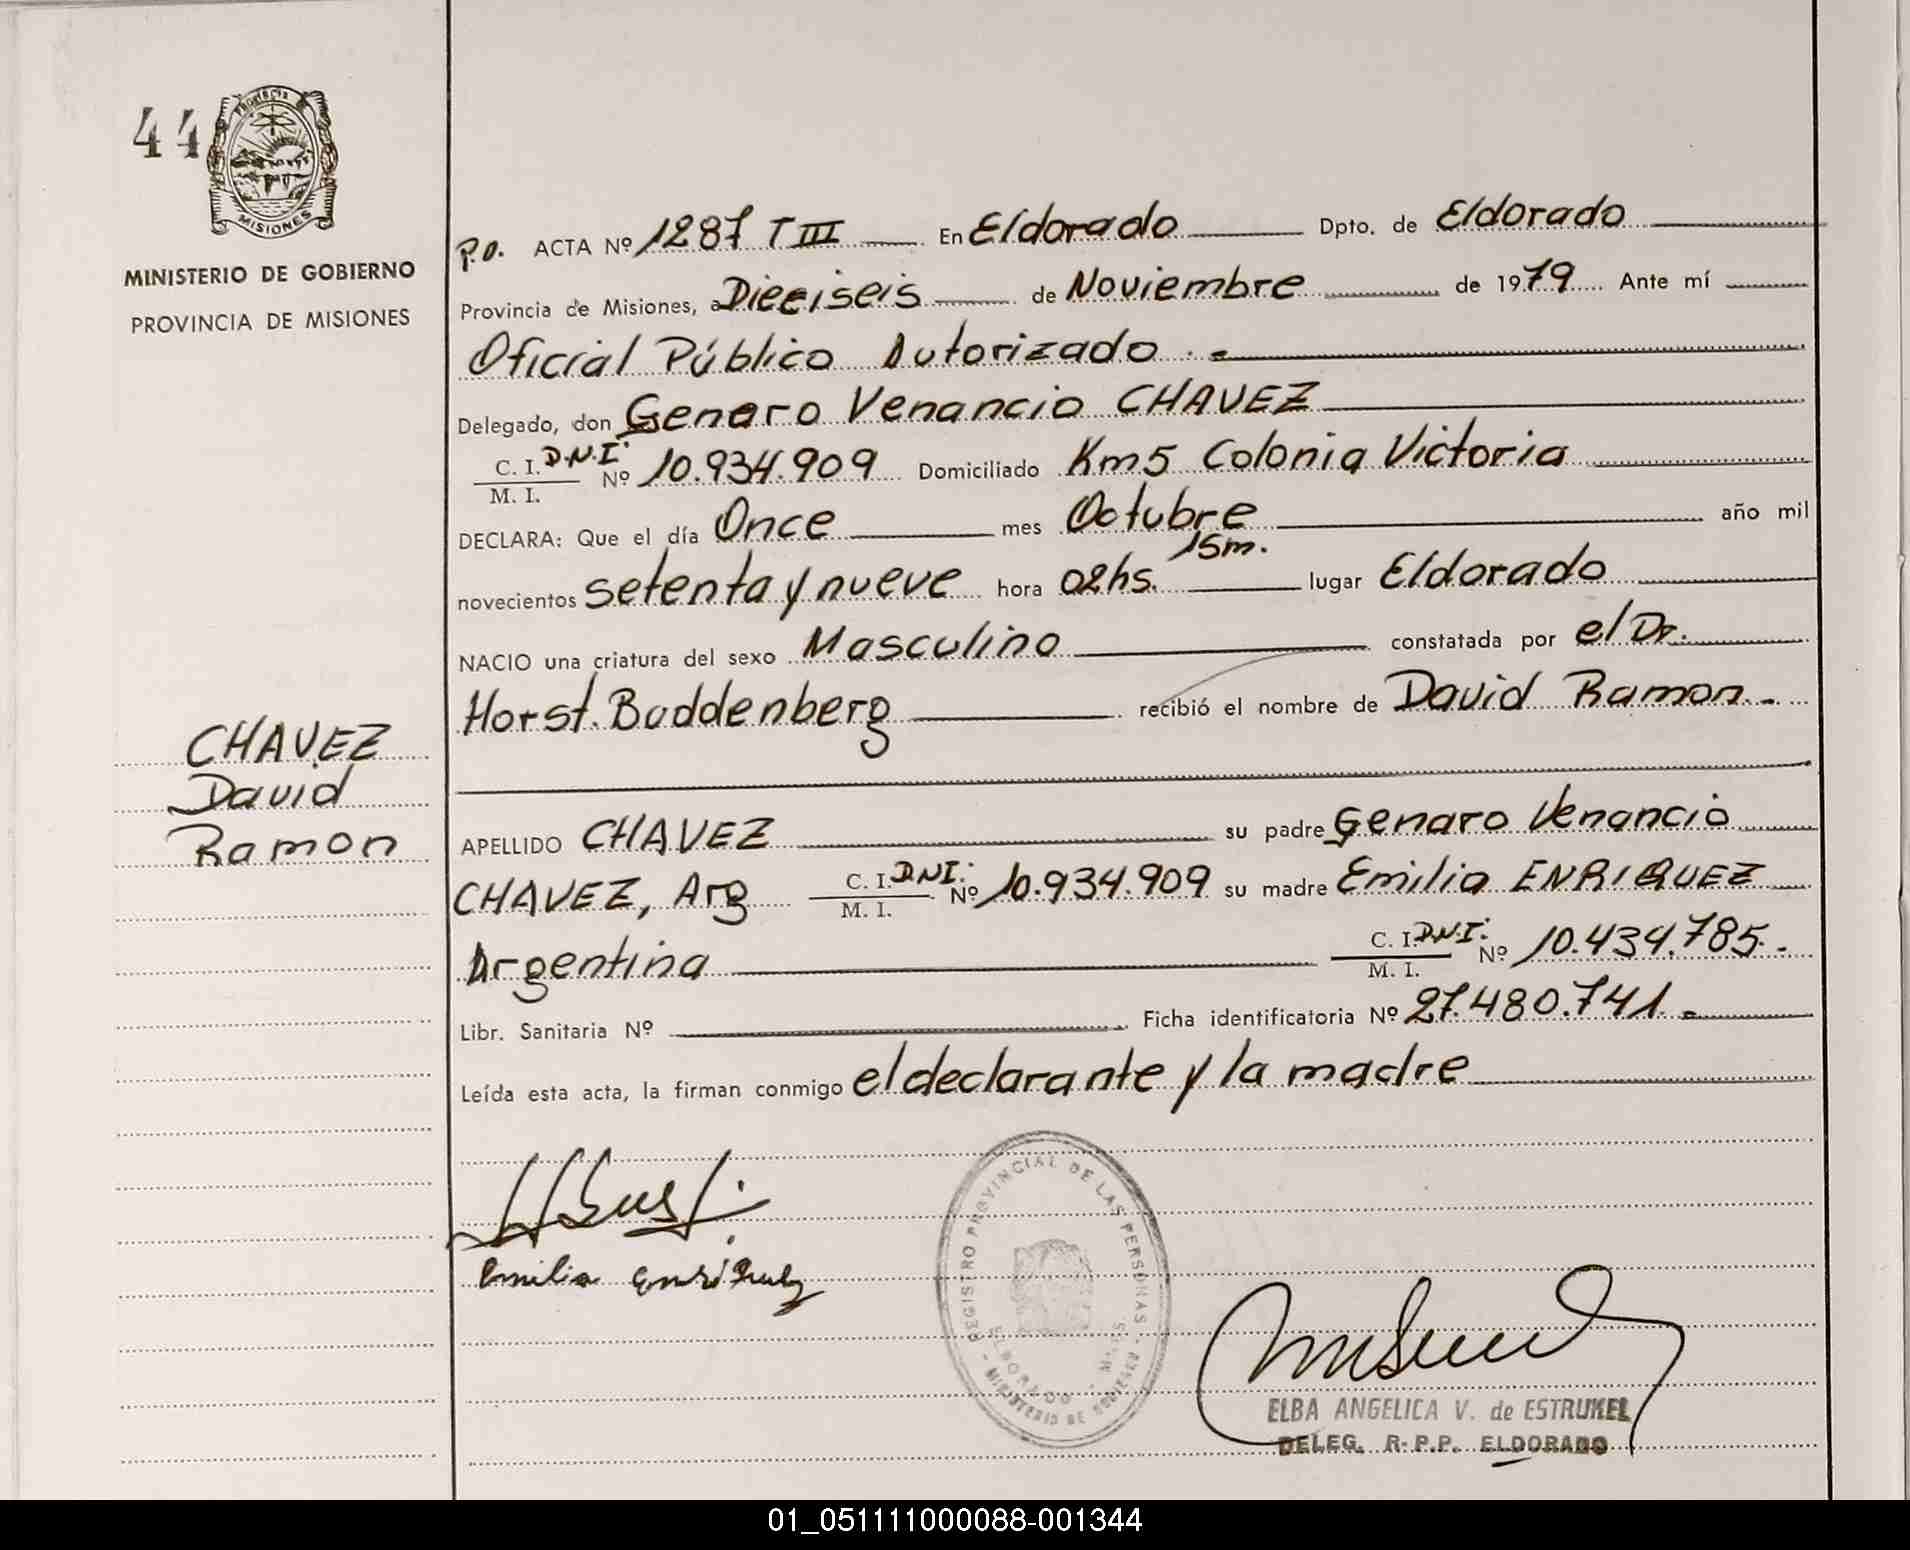 44
PROVINCIA DE
MISIONES
MINISTERIO DE GOBIERNO
PROVINCIA DE MISIONES
P.O. ACTA Nº 1287 T III En Eldorado Dpto. de Eldorado
Provincia de Misiones, a Dieciseis de Noviembre de 1979 Ante mí
Oficial Público Autorizado.
Delegado, don Genaro Venancio CHAVEZ
C. I. D.N.I. Nº 10.934.909 Domiciliado Km5 Colonia Victoria
M. I.
DECLARA: Que el día Once mes Octubre año mil
novecientos setenta y nueve hora 02hs. 15m. lugar Eldorado
NACIO una criatura del sexo Masculino constatada por el Dr.
Horst. Buddenberg recibió el nombre de David Ramon.-
CHAVEZ
David
Ramon
APELLIDO CHAVEZ su padre Genaro Venancio
CHAVEZ, Arg C. I. D.N.I. Nº 10.934.909 su madre Emilia ENRIQUEZ
M. I.
Argentina C. I. D.N.I. Nº 10.434.785.-
M. I.
Libr. Sanitaria Nº Ficha identificatoria Nº 27.480.741.-
Leída esta acta, la firman conmigo el declarante y la madre
Emilia Enriquez
REGISTRO PROVINCIAL DE LAS PERSONAS
ELDORADO - MNES.
MINISTERIO DE GOBIERNO
ELBA ANGELICA V. de ESTRUKEL
DELEG. R.P.P. ELDORADO
01_051111000088-001344